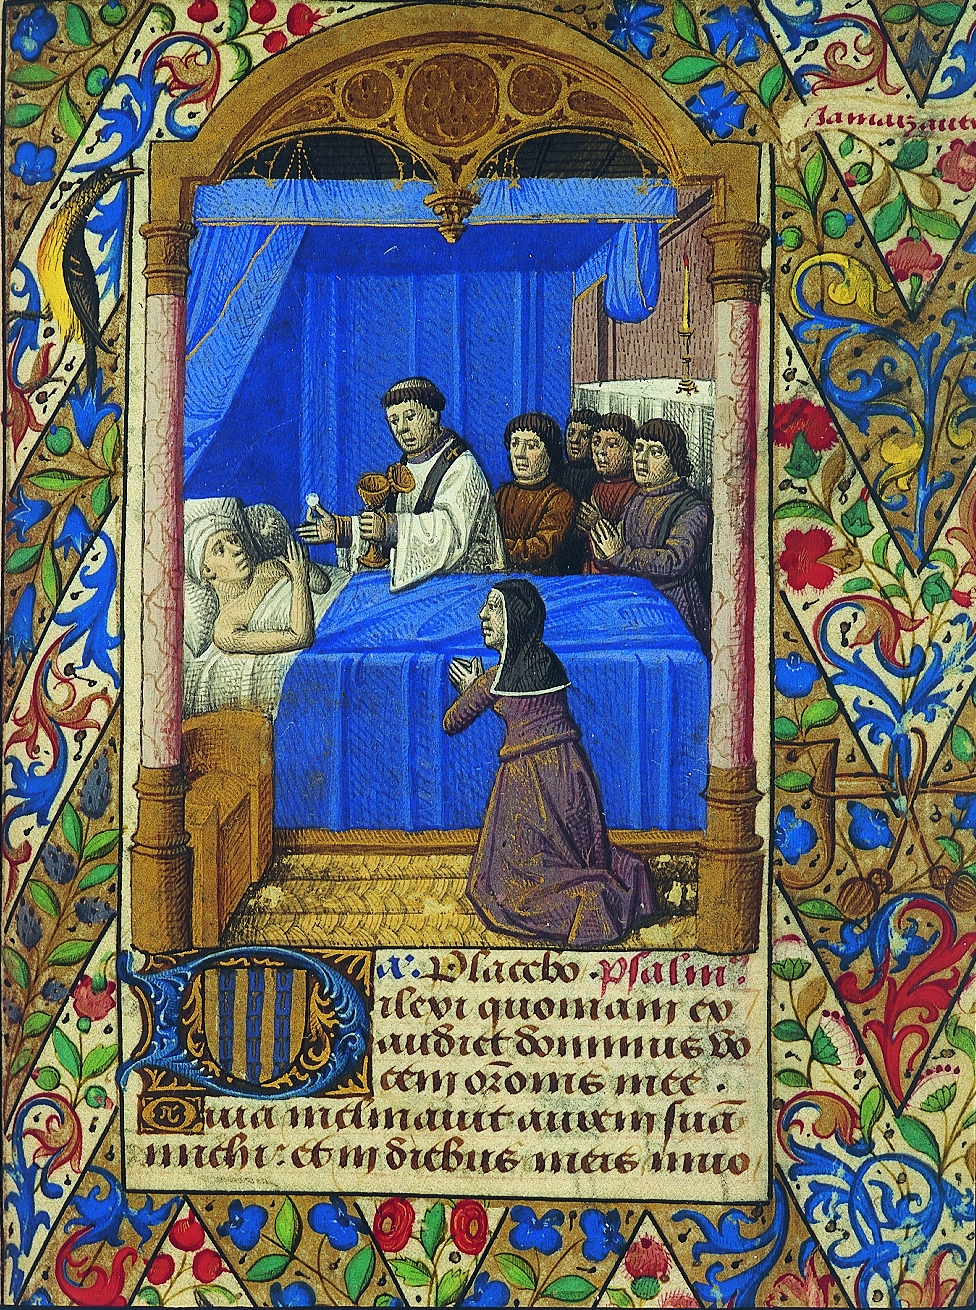 Jamaiz autr
añ. Placebo. psalm.
Dilexi quoniam ex
audiet dominus vo
cem orõnis mee.
Quia inclinavit aurem suã
michi: et in diebus meis invo